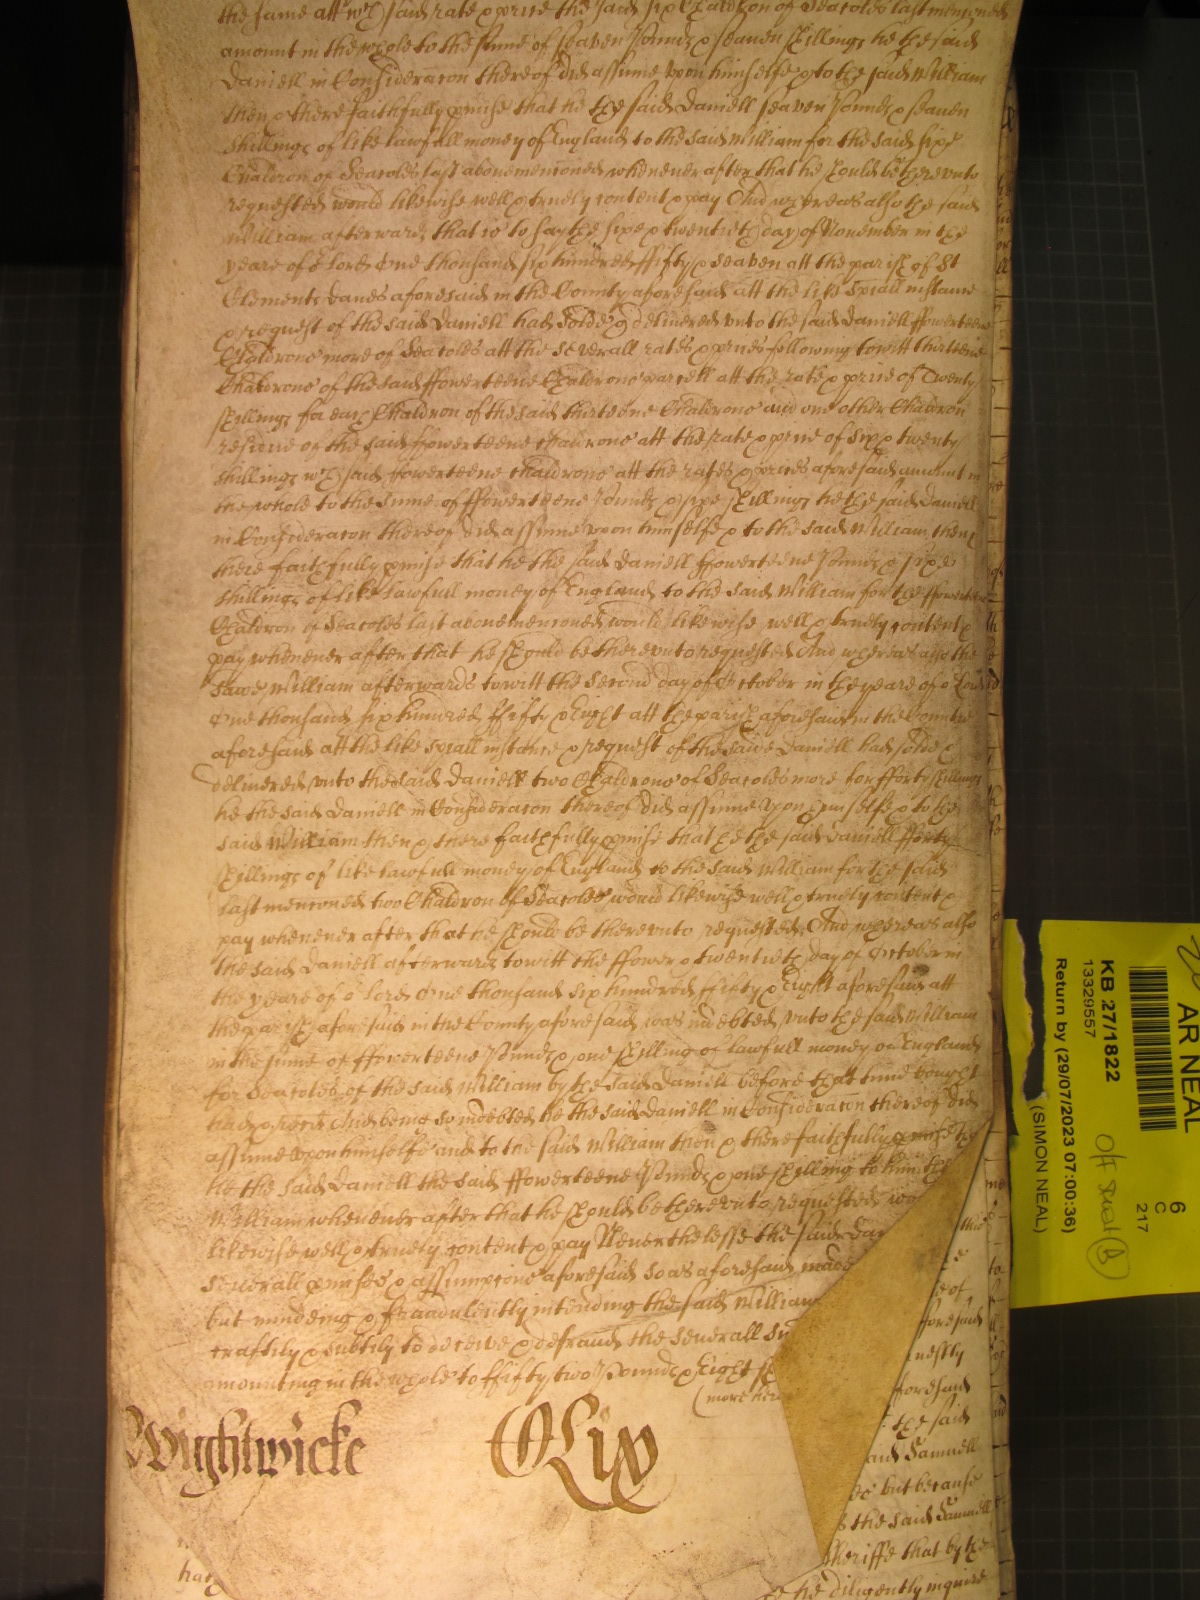 the same att wch said rate & price the said six Chaldron of Seacoles last menconed
amount in the whole to the sume of seaven Pounds & seaven shillings he the said
Daniell in Consideracon thereof did assume upon himselfe & to the said William
then & there faithfully pmise that he the said Daniell seaven Pounds & seaven
shillings of like lawfull money of England to the said William for the said sixe
Chaldron of Seacoles last abovemenconed whenever after that he should be thereunto
requested would likewise well & truely content & pay And whereas also the said
William afterwards that is to say the sixe & twentieth day of November in the
yeare of or Lord One thousand six hundred ffifty & seaven att the parish of St
Clements Danes aforesaid in the County aforesaid att the like spiall instance
& request of the said Daniell had sold & delivered unto the said Daniell ffowerteene
Chaldrons more of Seacoles att the severall rates & prices following towitt thirteene
Chaldrons of the said ffowerteene Chaldrons parcell att the rate & price of Twenty
shillings for each Chaldron of the said thirteene Chaldrons and one other Chaldron
residue of the said ffowerteene chaldrons att the rate & price of six & twenty
shillings wch said ffowerteene chaldrons att the rates & prices aforesaid amount in
the whole to the sume of ffowerteene Pounds & sixe shillings he the said Daniell
in Consideracon thereof did assume upon himselfe & to the said William then &
there faithfully pmise that he the said Daniell ffowerteene Pounds & sixe
shillings of like lawfull money of England to the said William for the ffowerteene
Chaldron of Seacoles last abovemenconed would likewise well & truely content &
pay whenever after that he should be thereunto requested And whereas also the
said William afterwards towitt the second day of October in the yeare of or Lord
One thousand six hundred ffifty & Eight att the parish aforesaid in the Countie
aforesaid att the like spiall instance & request of the said Daniell had sold &
delivered unto the said Daniell two Chaldrons of Seacoles more for fforty shillings
he the said Daniell in Consideracon thereof did assume upon himselfe & to the
said William then & there faithfully pmise that he the said Daniell fforty
shillings of like lawfull money of England to the said William for the said
last menconed two Chaldron of Seacoles would likewise well & truely content &
pay whenever after that he should be thereunto requested And whereas also
the said Daniell afterwards towitt the ffower & twentieth day of October in
the yeare of or Lord One thousand six hundred ffifty & Eight aforesaid att
the parish aforesaid in the County aforesaid was indebted unto the said William
in the sume of ffowerteene Pounds & one shilling of lawfull money of England
for Seacoles of the said William by the said Daniell before that time bought
had & And being so indebted he the said Daniell in Consideracon thereof did
assume upon himselfe and to the said William then & there faithfully pmise
he the said Daniell the said ffowerteene Pounds & one shilling to him the
William whenever after that he should be thereunto requested
likewise well & truely content & pay Neverthelesse the said
severall pmises & assumpcons aforesaid so as aforesaid made
but minding & fraudulently intending the said William
craftily & subtily to deceive & defraud the severall
amounting in the whole to ffifty two Pounds & Eight
(more
Wightwicke CLix
foresaid
foresaid
the said
said Samuell
but because
the said Samuell
Sheriffe that by the
he diligently inquire
AR NEAL
6
C
217
KB 27/1822
13329557
Return by (29/07/2023 07:00:36)
(SIMON NEAL)